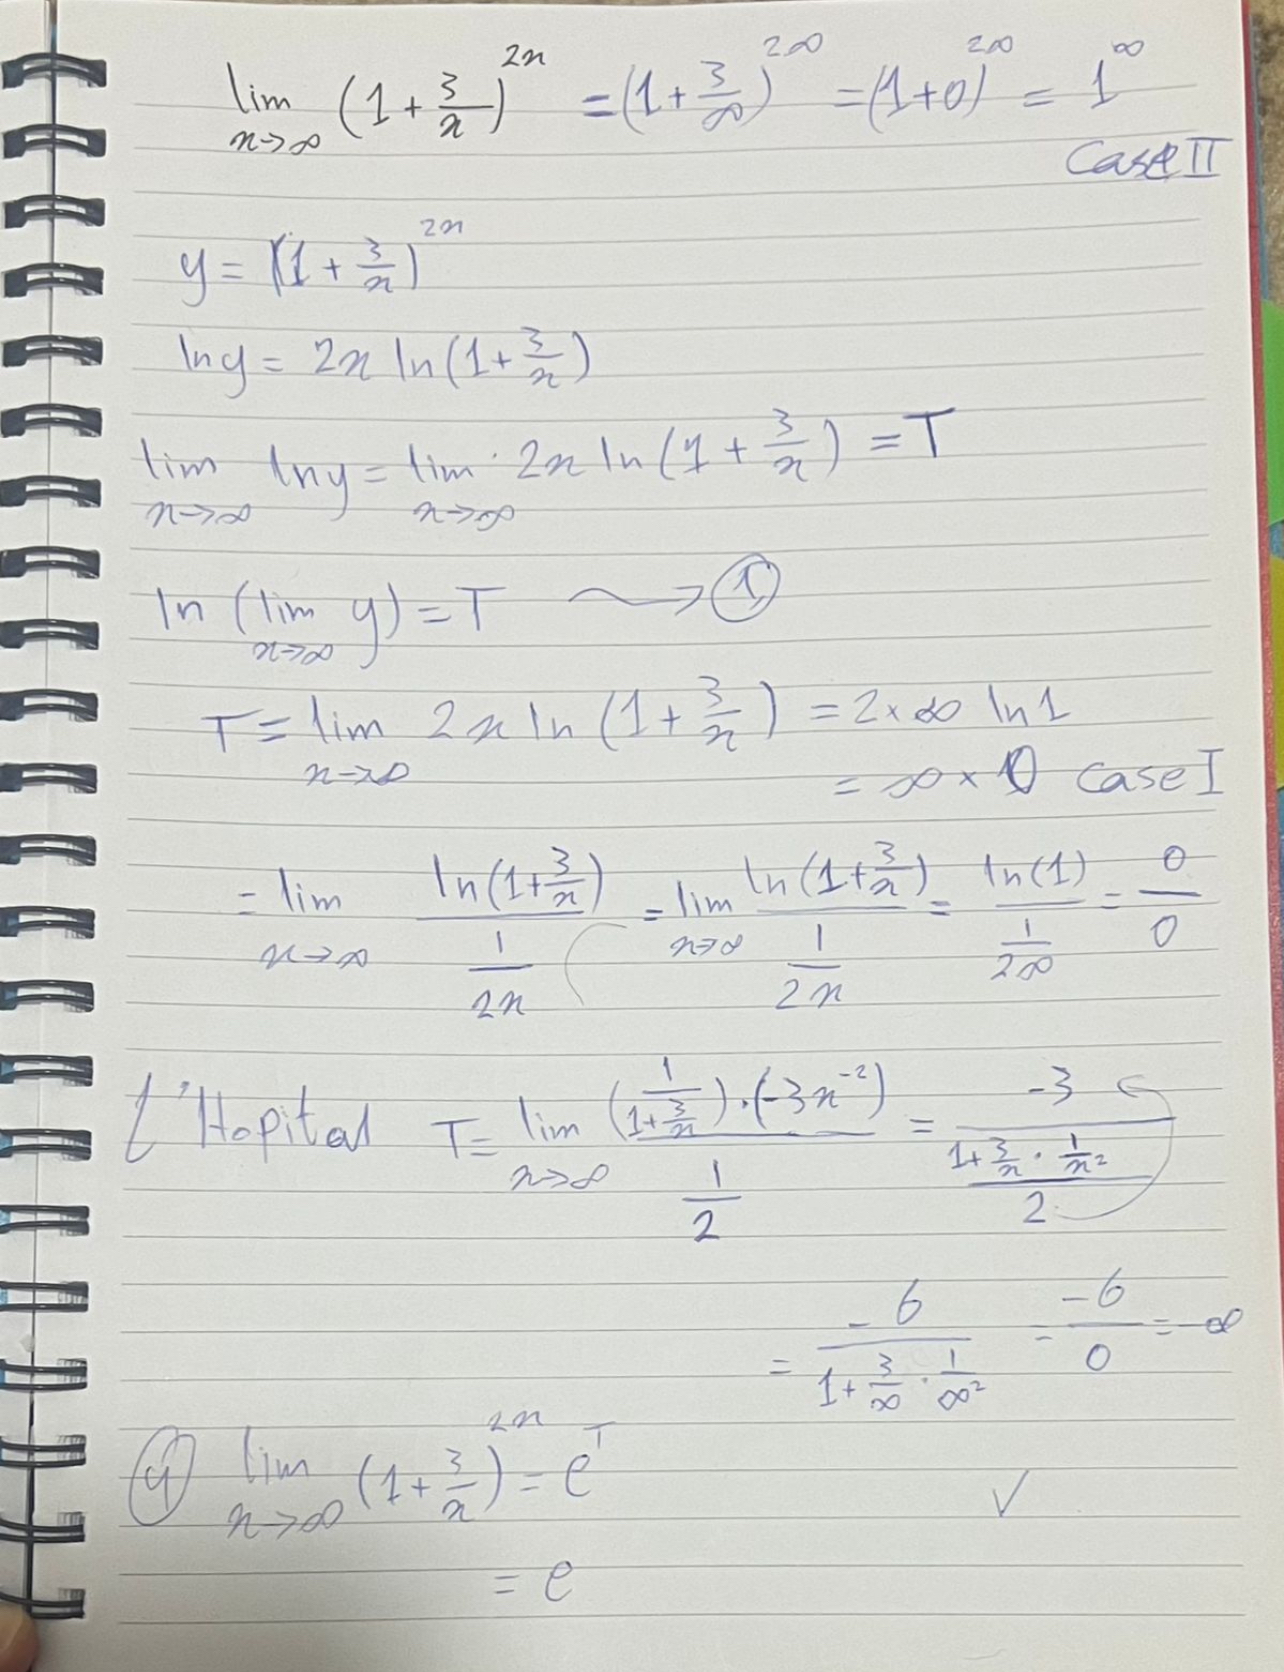 lim x→∞ (1 + 3/x)^2x = (1 + 3/∞)^2∞ = (1+0)^2∞ = 1^∞
Case II
y = (1 + 3/x)^2x
ln y = 2x ln(1 + 3/x)
lim x→∞ ln y = lim x→∞ 2x ln(1 + 3/x) = T
ln (lim x→∞ y) = T → ①
T = lim x→∞ 2x ln(1 + 3/x) = 2×∞ ln 1
= ∞ × 0 case I
= lim x→∞ ln(1 + 3/x) / (1/2x) = lim x→∞ ln(1 + 3/x) / (1/2x) = ln(1) / (1/2∞) = 0/0
L'Hopital T = lim x→∞ (1/(1 + 3/x)) · (-3x^-2) / (1/2) = -3 / ((1 + 3/x · 1/x²) / 2)
= -6 / (1 + 3/∞ · 1/∞²) = -6/0 = -∞
lim x→∞ (1 + 3/x)^2x = e^T
= e